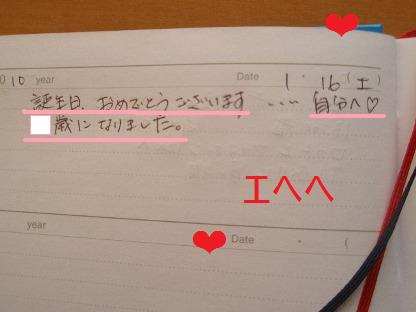 010 year Date 1・16(土)
誕生日、おめでとうございます ‥‥ 自分へ♡
歳になりました。
エヘヘ
year Date ・ (